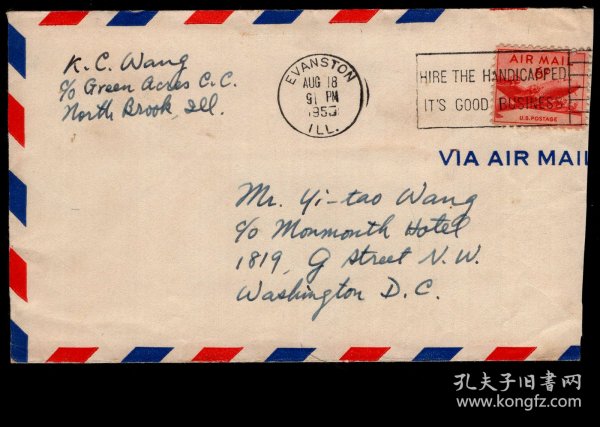 K. C. Wang
c/o Green Acres C. C.
North Brook, Ill.
EVANSTON
AUG 18
PM
1953
ILL.
HIRE THE HANDICAPPED
IT'S GOOD BUSINESS
AIR MAIL
U.S. POSTAGE
VIA AIR MAIL
Mr. Yi-tao Wang
c/o Monmouth Hotel
1819, G Street N. W.
Washington D. C.
孔夫子旧书网
www.kongfz.com